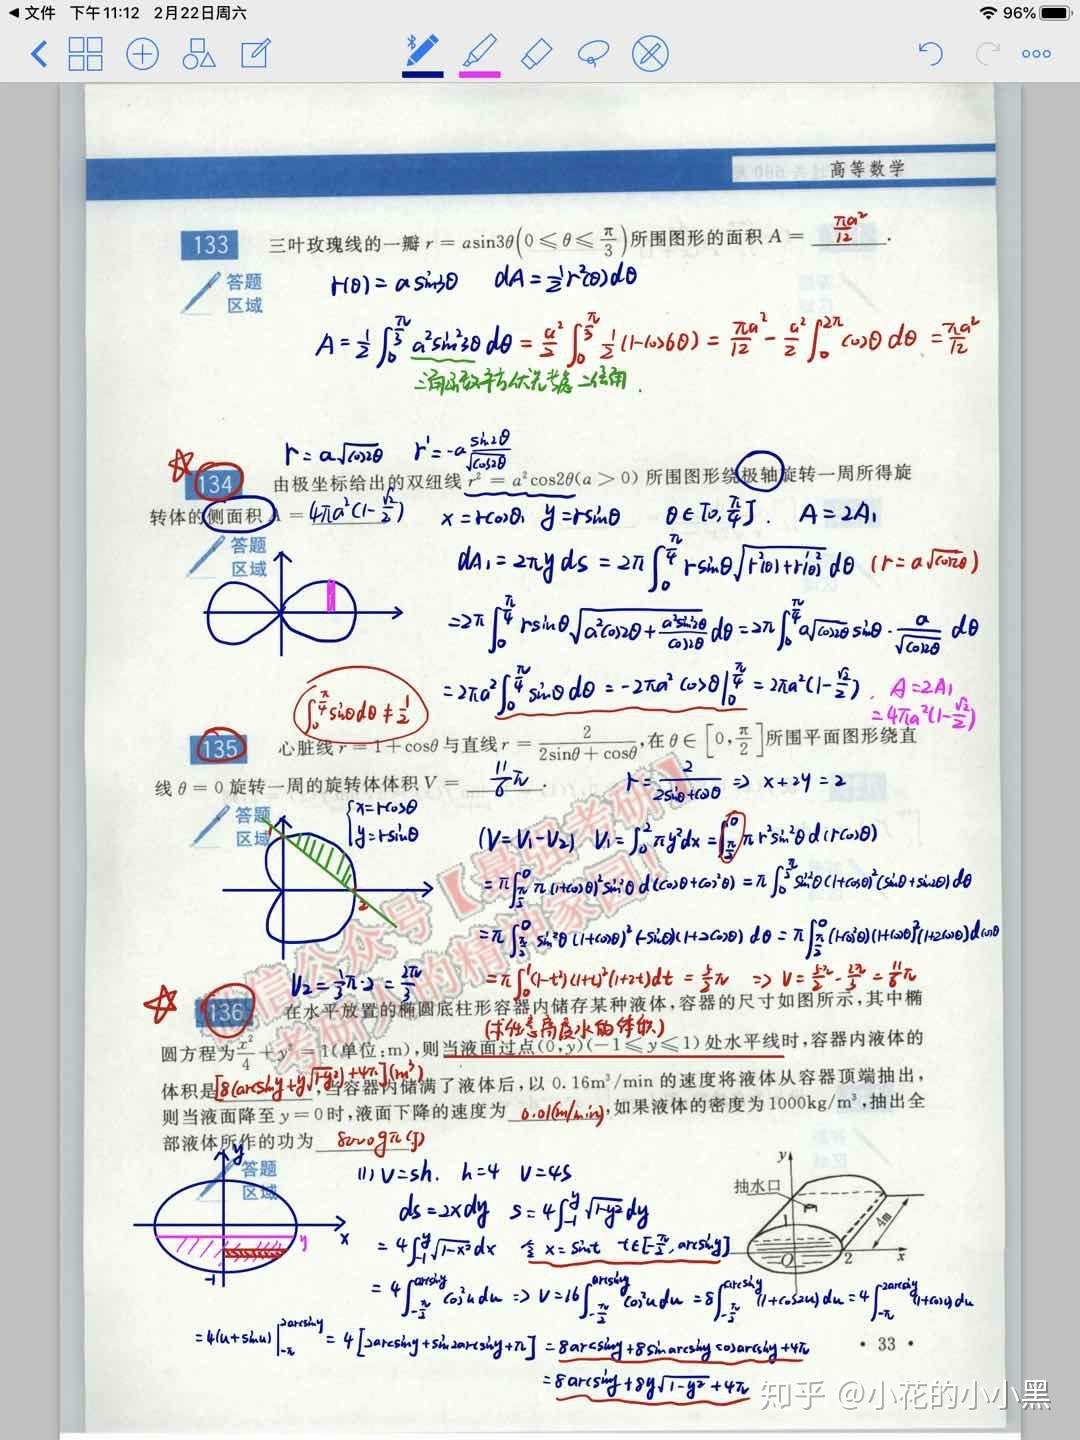 文件 下午11:12 2月22日周六 96%
高等数学
πa²/12
133 三叶玫瑰线的一瓣 r = asin3θ(0 ≤ θ ≤ π/3)所围图形的面积 A = ______.
答题区域
r(θ) = a sin3θ dA = ½r²(θ)dθ
A = ½∫₀^{π/3} a²sin²3θ dθ = a²/2 ∫₀^{π/3} ½(1-cos6θ) = πa²/12 - a²/2 ∫₀^{2π} cosθ dθ = πa²/12
r = a√cos2θ r' = -a sin2θ/√cos2θ
134 由极坐标给出的双纽线 r² = a²cos2θ(a > 0) 所围图形绕极轴旋转一周所得旋
转体的侧面积 A = 4πa²(1-√2/2)
x = rcosθ, y = rsinθ θ∈[0, π/4]. A = 2A₁
答题区域
dA₁ = 2πy ds = 2π∫₀^{π/4} rsinθ√(r²(θ)+r'(θ)²) dθ (r = a√cos2θ)
= 2π∫₀^{π/4} rsinθ√(a²cos2θ + a²sin²2θ/cos2θ) dθ = 2π∫₀^{π/4} a√cos2θ sinθ · a/√cos2θ dθ
= 2πa²∫₀^{π/4} sinθ dθ = -2πa² cosθ|₀^{π/4} = 2πa²(1-√2/2). A = 2A₁
= 4πa²(1-√2/2)
∫₀^{π/4} sinθdθ ≠ 1/2
135 心脏线 r = 1+cosθ 与直线 r = 2/(2sinθ+cosθ), 在 θ ∈ [0, π/2] 所围平面图形绕直
线 θ = 0 旋转一周的旋转体体积 V = 11/6 π.
r = 2/(2sinθ+cosθ) ⇒ x+2y = 2
答题区域
{x = rcosθ
y = rsinθ
(V = V₁-V₂) V₁ = ∫₀² πy²dx = ∫_{π/2}^0 π r²sin²θ d(rcosθ)
2
= π∫_{π/2}^0 π(1+cosθ)²sin²θ d(cosθ+cos²θ) = π∫₀^{π/2} sin²θ(1+cosθ)²(sinθ+sin2θ)dθ
= π∫_{π/2}^0 sin²θ(1+cosθ)²(-sinθ)(1+2cosθ) dθ = π∫_{π/2}^0 (1-cos²θ)(1+cosθ)²(1+2cosθ)dcosθ
V₂ = ⅓π·2 = 2π/3
= π∫₀¹(1-t²)(1+t)²(1+2t)dt = 5/2 π ⇒ V = 5/2π - 2/3π = 11/6 π
微信公众号【最强考研】
考研人的精神家园!
136 在水平放置的椭圆底柱形容器内储存某种液体,容器的尺寸如图所示,其中椭
(求任意高度水的体积)
圆方程为 x²/4 + y² = 1(单位:m),则当液面过点(0,y)(-1≤y≤1)处水平线时,容器内液体的
体积是 [8(arcsiny+y√1-y²)+4π](m³),当容器内储满了液体后,以 0.16m³/min 的速度将液体从容器顶端抽出,
则当液面降至 y=0时,液面下降的速度为 0.01(m/min),如果液体的密度为1000kg/m³,抽出全
部液体所作的功为 8000gπ(J)
答题区域
y
x
y
-1
(1) V = sh. h = 4 V = 4S
ds = 2xdy S = 4∫_{-1}^y √1-y² dy
= 4∫_{-1}^y √1-x² dx 令 x = sint t∈[-π/2, arcsiny]
y
抽水口
1
4m
O
2
x
= 4∫_{-π/2}^{arcsiny} cos²u du ⇒ V = 16∫_{-π/2}^{arcsiny} cos²u du = 8∫_{-π/2}^{arcsiny} (1+cos2u)du = 4∫_{-π}^{2arcsiny}(1+cosu)du
= 4(u+sinu)|_{-π}^{2arcsiny} = 4[2arcsiny+sin2arcsiny+π] = 8arcsiny+8sinarcsiny cosarcsiny+4π
= 8arcsiny+8y√1-y²+4π
· 33 ·
知乎 @小花的小小黑